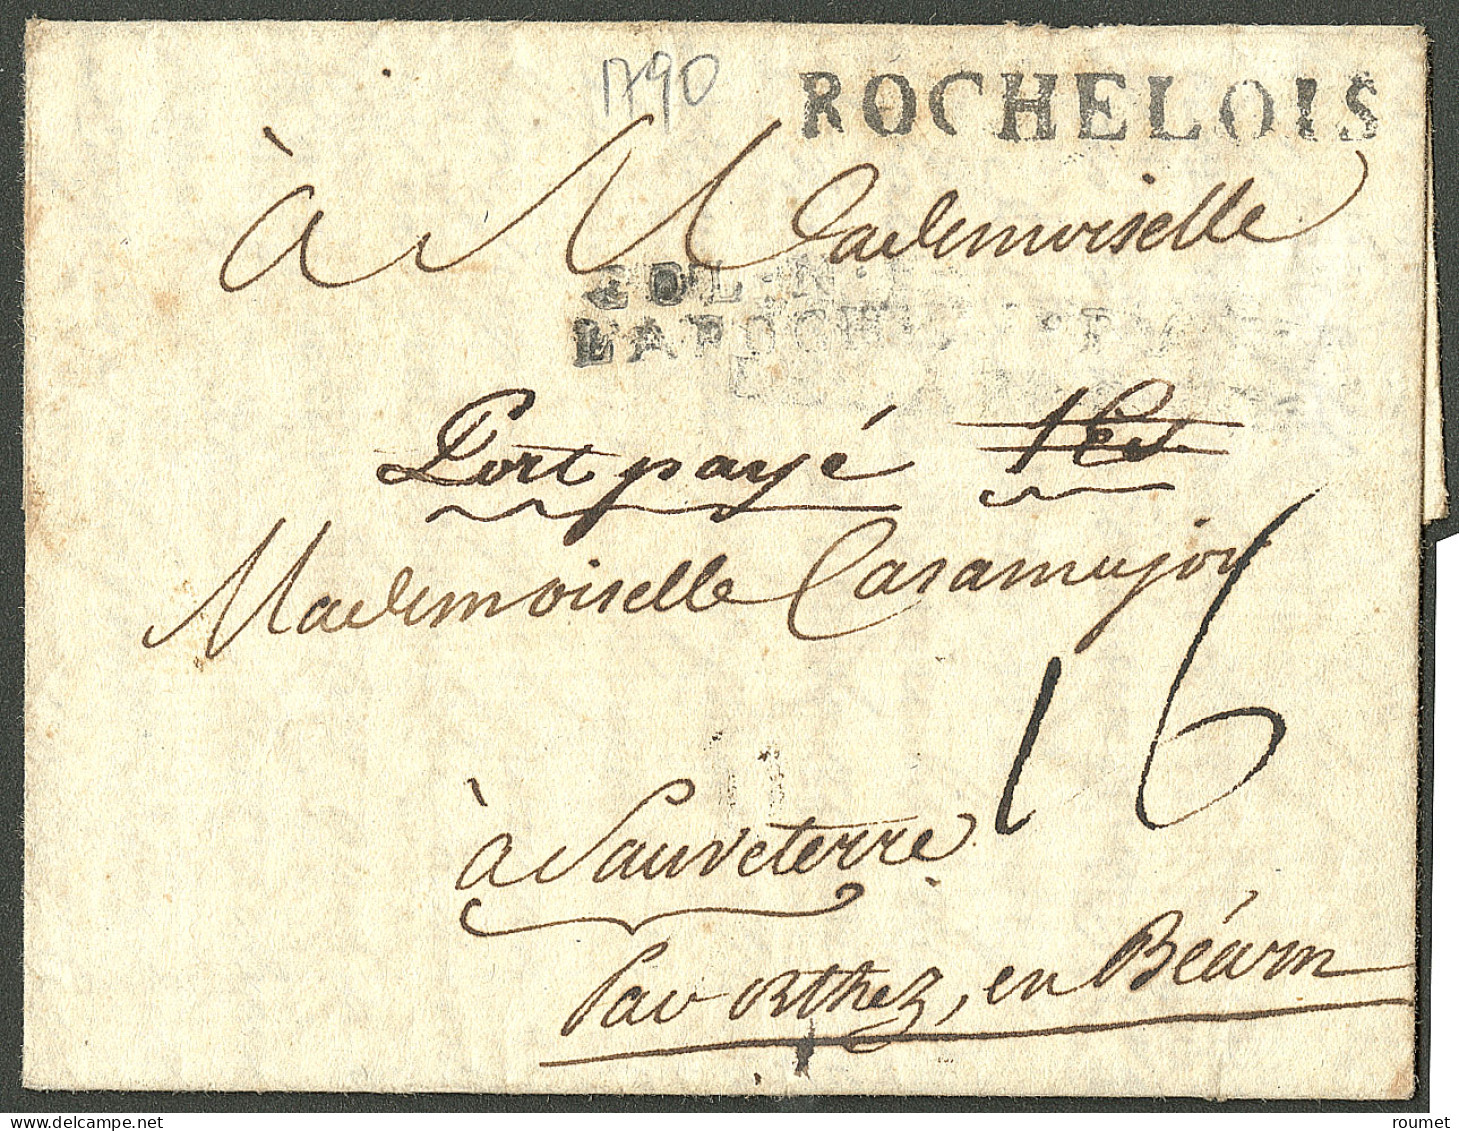 1790
ROCHELOIS
à Mademoiselle
COL · N
LAROCH
Port payé
Mademoiselle Casamajor
16
à Sauveterre
Par orthez, en Béarn
roumet.com